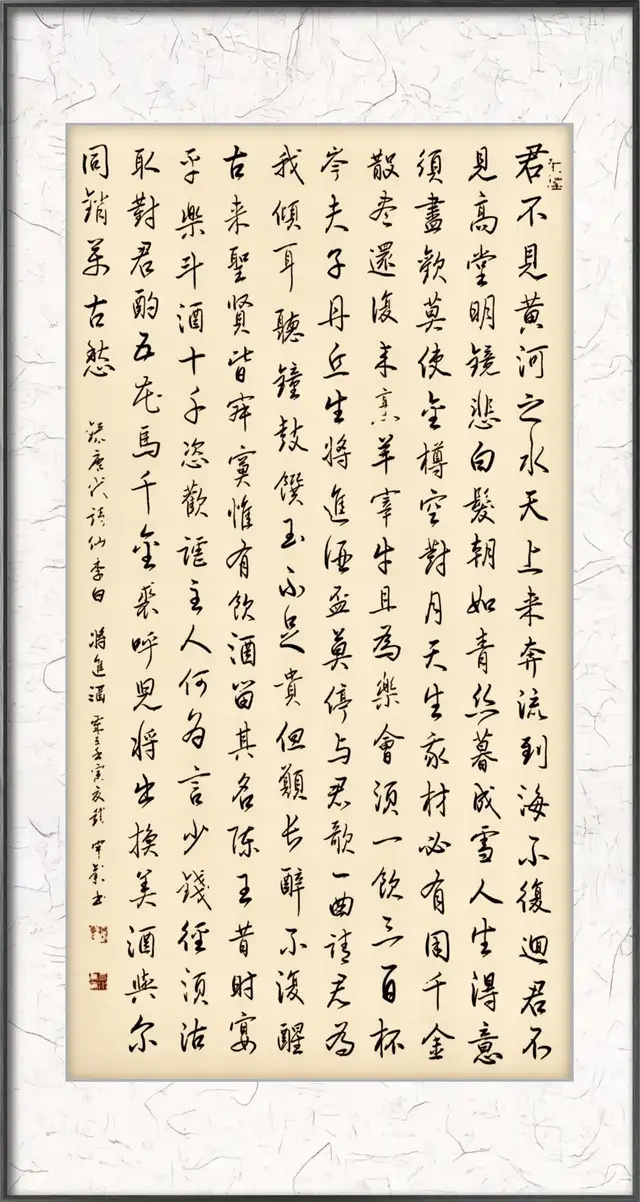 君不見黃河之水天上来奔流到海不復迴君不
見高堂明鏡悲白髮朝如青丝暮成雪人生得意
須盡歡莫使金樽空對月天生我材必有用千金
散尽還復来烹羊宰牛且為樂會須一飲三百杯
岑夫子丹丘生將進酒盃莫停与君歌一曲請君為
我傾耳聽鐘鼓饌玉不足貴但願长醉不復醒
古来聖賢皆寂寞惟有飲酒留其名陈王昔时宴
平樂斗酒十千恣歡謔主人何为言少錢徑須沽
取對君酌五花馬千金裘呼兒將出換美酒與尔
同銷萬古愁
錄唐代詩仙李白 將進酒 壬寅 书